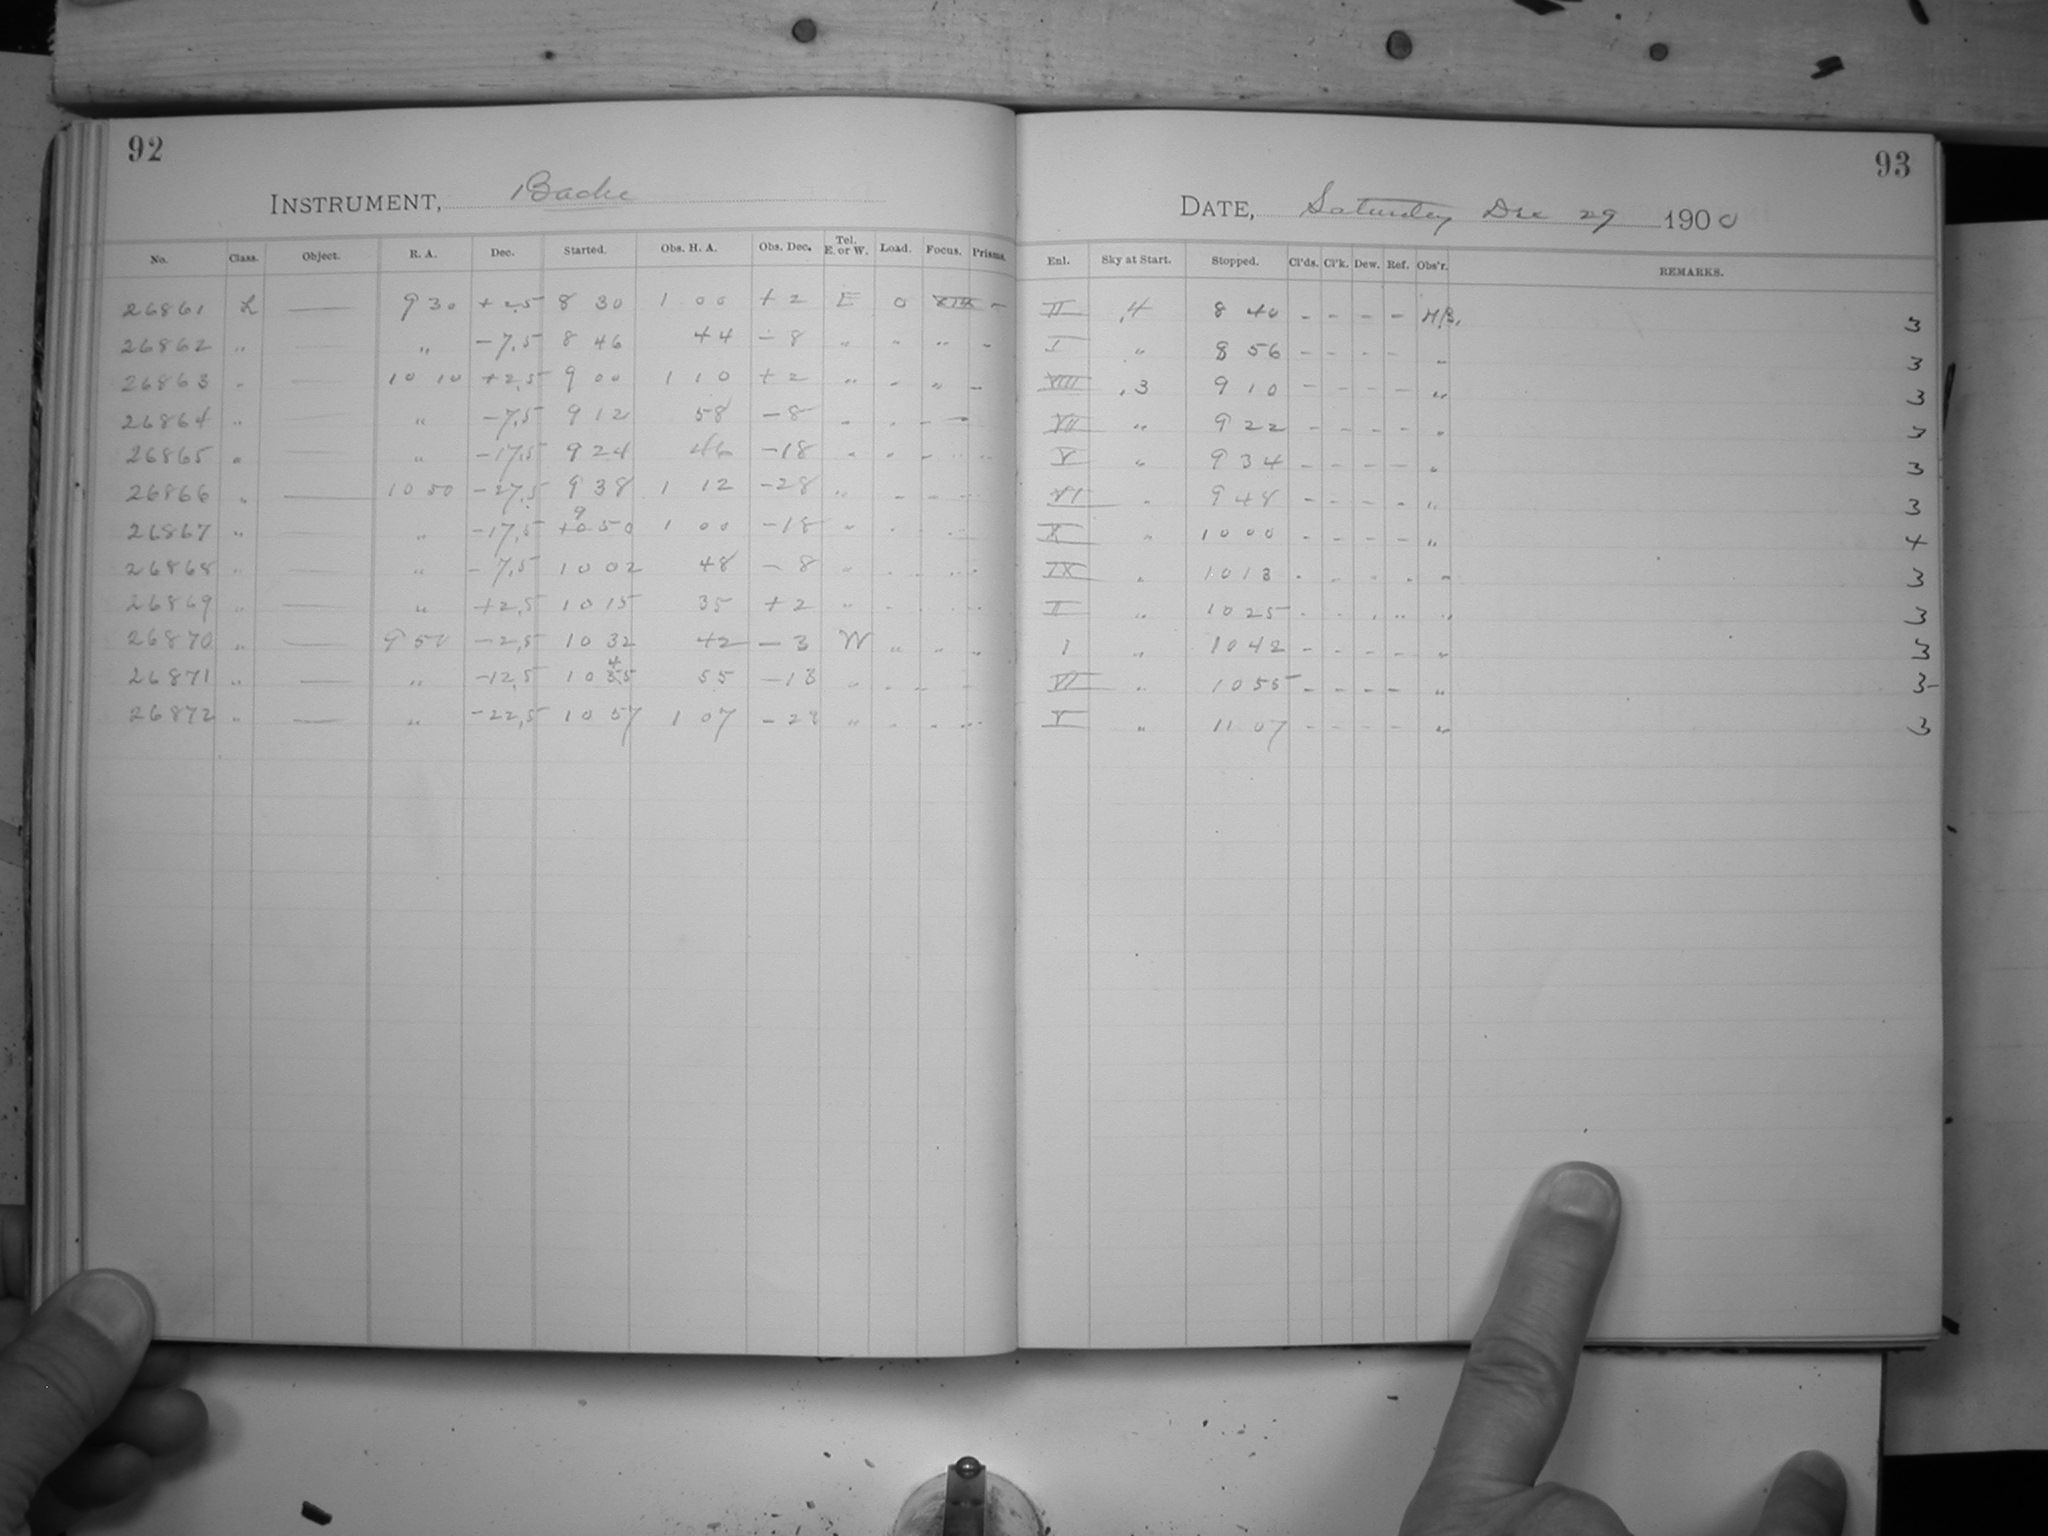 92
INSTRUMENT, Bache
No. Class. Object. R. A. Dec. Started. Obs. H. A. Obs. Dec. Tel. E. or W. Load. Focus. Prisms.
26861 L — 9 30 +2.5 8 30 1 00 +2 E 0 –
26862 " — " -7.5 8 46 44 -8 " " " "
26863 " — 10 10 +2.5 9 00 1 10 +2 " " " "
26864 " — " -7.5 9 12 58 -8 " " " "
26865 " — " -17.5 9 24 46 -18 " " " "
26866 " — 10 50 -27.5 9 38 1 12 -28 " " " "
26867 " — " -17.5 9 50 1 00 -18 " " " "
26868 " — " -7.5 10 02 48 -8 " " " "
26869 " — " +2.5 10 15 35 +2 " " " "
26870 " — 9 50 -2.5 10 32 42 -3 W " " "
26871 " — " -12.5 10 45 55 -13 " " " "
26872 " — " -22.5 10 57 1 07 -23 " " " "
93
DATE, Saturday Dec 29 1900
Enl. Sky at Start. Stopped. Cl'ds. Cl'k. Dew. Ref. Obs'r. REMARKS.
II .4 8 40 - - - - 3
I " 8 56 - - - - " 3
VIII .3 9 10 - - - - " 3
VII " 9 22 - - - - " 3
V " 9 34 - - - - " 3
VI " 9 48 - - - - " 3
X " 10 00 - - - - " 4
IX " 10 13 - - - - " 3
II " 10 25 - - " " " 3
I " 10 42 - - - - " 3
VI " 10 55 - - - - " 3-
V " 11 07 - - - - " 3